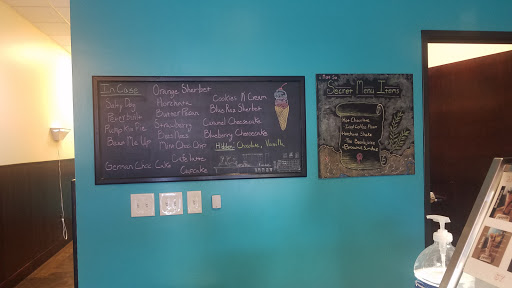 In Case
Salty Dog
Peterbuilt
Pumpkin Pie
Bear Me Up
German Choc Cake
Orange Sherbet
Horchata
Butter Pecan
Strawberry
Mint Choc Chip
Cupcake
Cookies N Cream
Blue Razz Sherbet
Caramel Cheesecake
Blueberry Cheesecake
Hidden: Chocolate, Vanilla
Secret Menu Items
Iced Coffee Float
Horchata Shake
Brownie Sundae